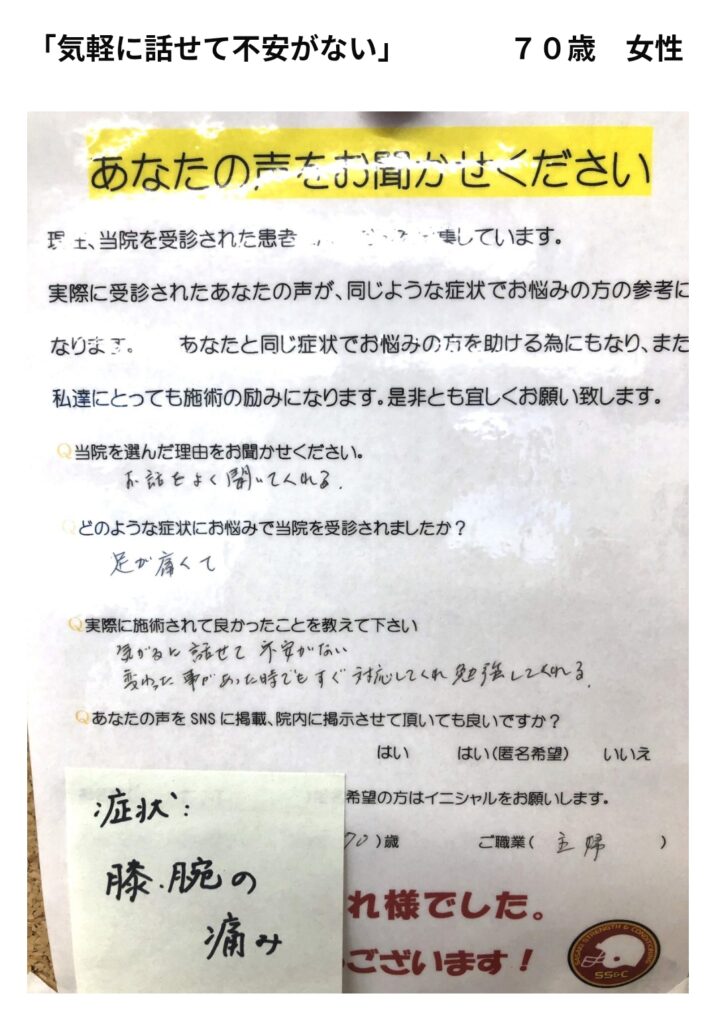 「気軽に話せて不安がない」　　７０歳　女性
あなたの声をお聞かせください
現在、当院を受診された患者 集しています。
実際に受診されたあなたの声が、同じような症状でお悩みの方の参考に
なります。　あなたと同じ症状でお悩みの方を助ける為にもなり、また
私達にとっても施術の励みになります。是非とも宜しくお願い致します。
Q当院を選んだ理由をお聞かせください。
お話をよく聞いてくれる.
Qどのような症状にお悩みで当院を受診されましたか？
足が痛くて
Q実際に施術されて良かったことを教えて下さい
気がるに話せて 不安がない
変わった事があった時でもすぐ対応してくれ勉強してくれる.
Qあなたの声をSNSに掲載、院内に掲示させて頂いても良いですか？
はい　はい（匿名希望）　いいえ
希望の方はイニシャルをお願いします。
70）歳　ご職業（ 主婦 ）
症状：
膝・腕の
痛み
れ様でした。
ございます！
SASAKI STRENGTH & CONDITIONING
SS&C